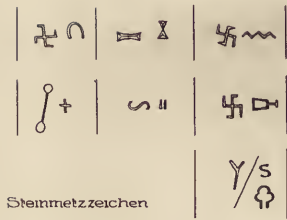 Y/S
Steinmetzzeichen